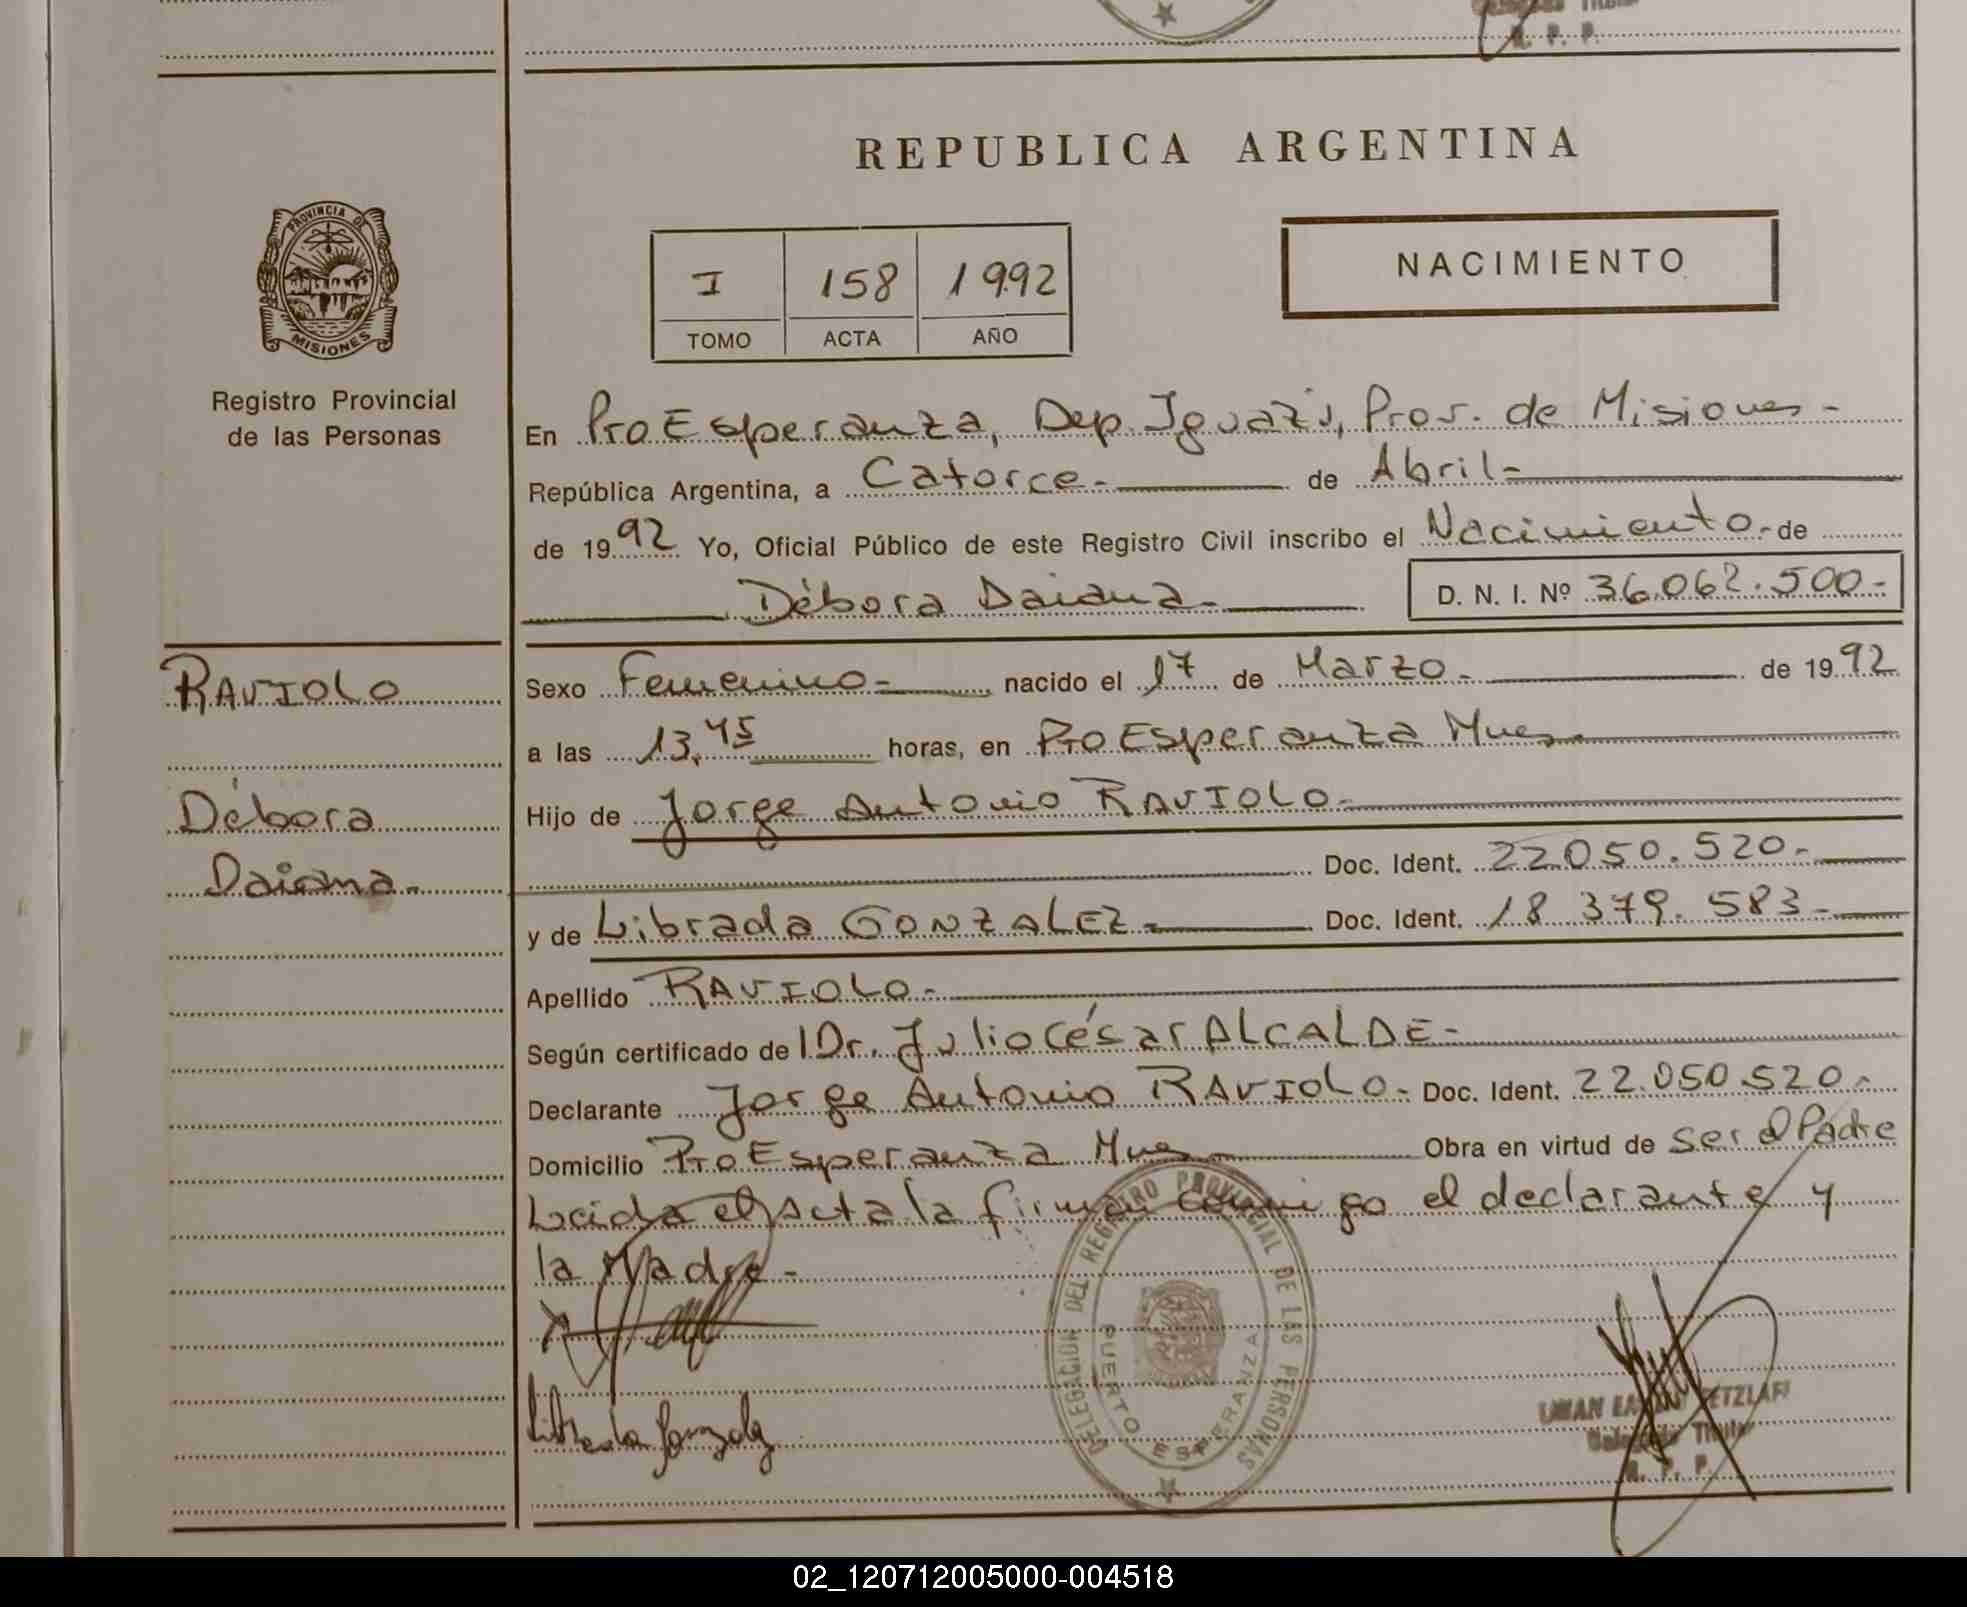 R. P. P.
REPUBLICA ARGENTINA
PROVINCIA DE
MISIONES
Registro Provincial
de las Personas
NACIMIENTO
I 158 1992
TOMO ACTA AÑO
En Pto Esperanza, Dep. Iguazú, Prov. de Misiones-
República Argentina, a Catorce- de Abril-
de 1992 Yo, Oficial Público de este Registro Civil inscribo el Nacimiento- de
Débora Daiana- D. N. I. Nº 36.062.500-
RAVIOLO
Débora
Daiana-
Sexo Femenino- nacido el 17 de Marzo- de 1992
a las 13,45 horas, en Pto Esperanza Mnes
Hijo de Jorge Antonio RAVIOLO-
Doc. Ident. 22.050.520-
y de Librada GONZALEZ- Doc. Ident. 18 379.583-
Apellido RAVIOLO-
Según certificado de l Dr. Julio César ALCALDE-
Declarante Jorge Antonio RAVIOLO- Doc. Ident. 22.050.520-
Domicilio Pto Esperanza Mnes Obra en virtud de ser el Padre
Leida el Acta la firman conmigo el declarante y
la Madre-
Librada Gonzalez
DELEGACION DEL REGISTRO PROVINCIAL DE LAS PERSONAS
PUERTO ESPERANZA
Titular
R. P. P.
02_120712005000-004518